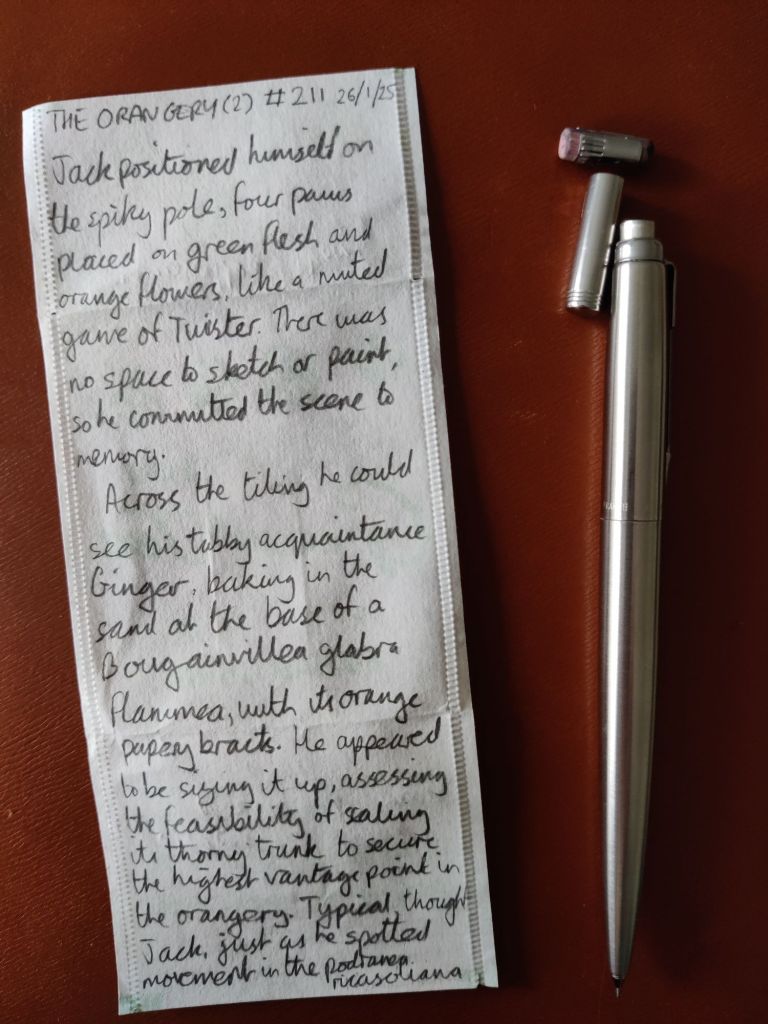 THE ORANGERY (2) # 211 26/1/25
Jack positioned himself on
the spiky pole, four paws
placed on green flesh and
orange flowers, like a muted
game of Twister. There was
no space to sketch or paint,
so he committed the scene to
memory.
Across the tiling he could
see his tabby acquaintance
Ginger, baking in the
sand at the base of a
Bougainvillea glabra
flammea, with its orange
papery bracts. He appeared
to be sizing it up, assessing
the feasibility of scaling
its thorny trunk to secure
the highest vantage point in
the orangery. Typical, thought
Jack, just as he spotted
movement in the podranea
ricasoliana